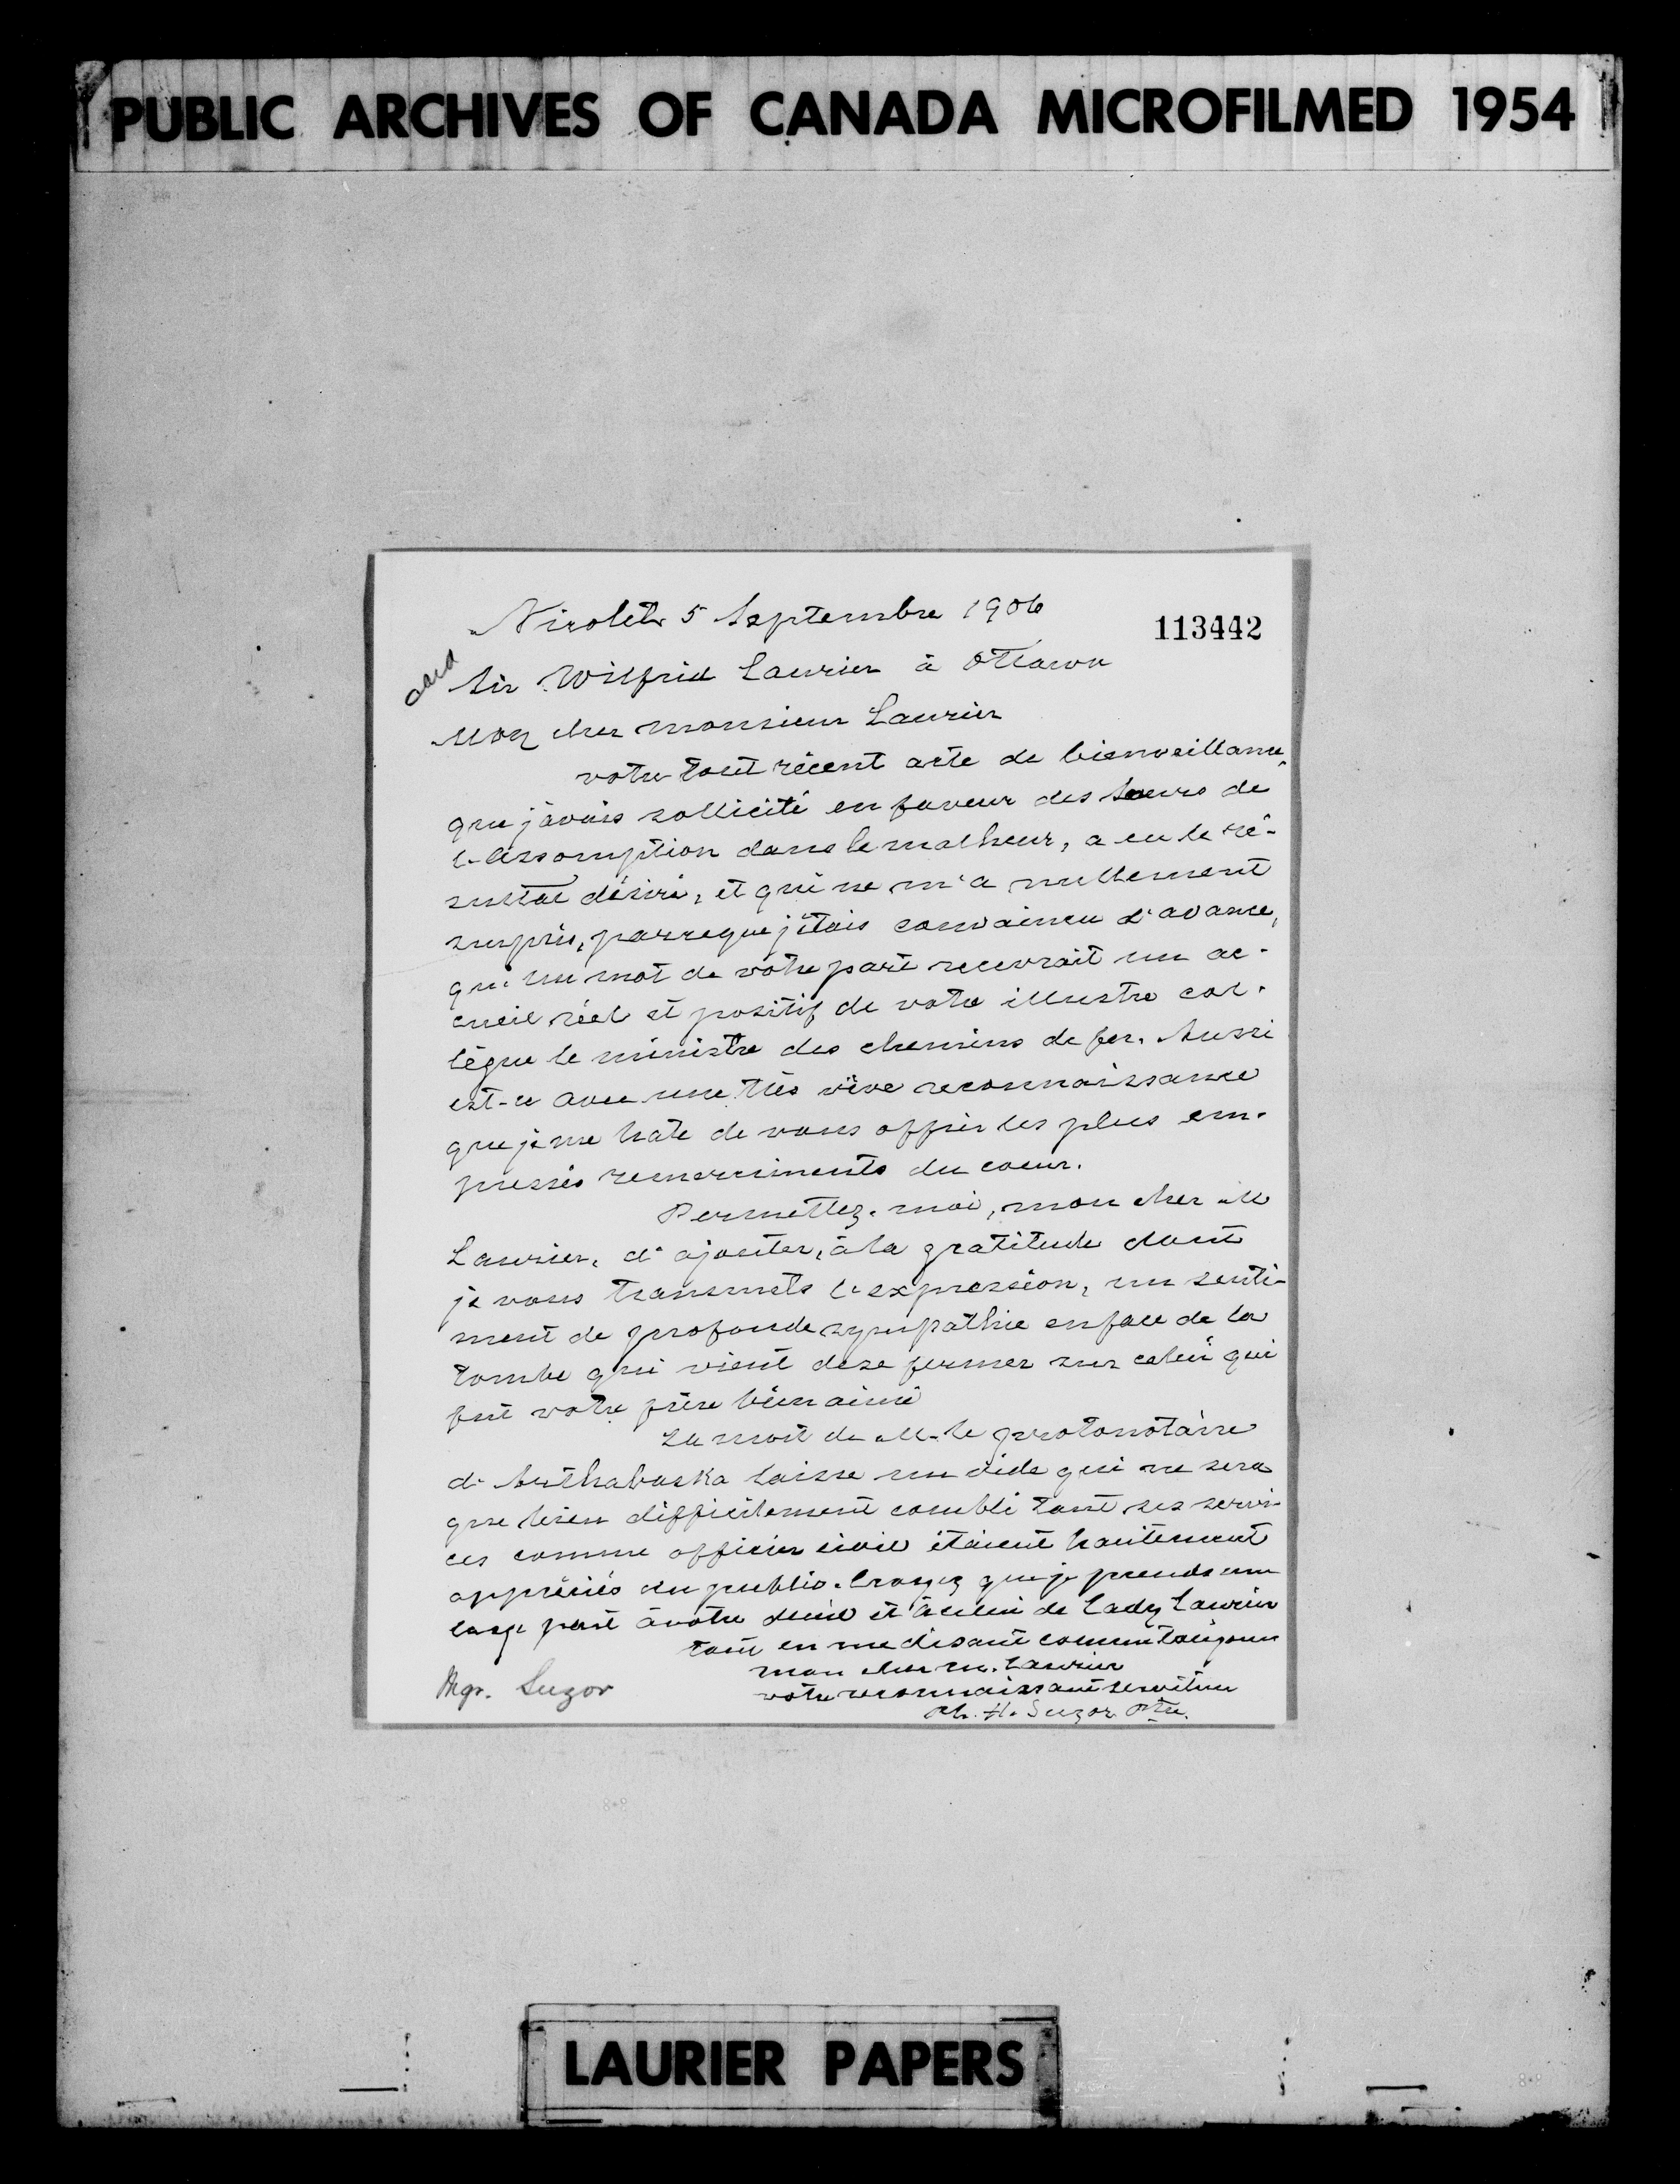 PUBLIC ARCHIVES OF CANADA MICROFILMED 1954
Nicolet 5 Septembre 1906
113442
Sir Wilfrid Laurier à Ottawa
Mon cher monsieur Laurier
votre tout récent acte de bienveillance,
que j'avais sollicité en faveur des Soeurs de
l'Assomption dans le malheur, a eu le ré-
sultat désiré, et qui ne m'a nullement
surpris, parceque j'étais convaincu d'avance,
qu'un mot de votre part recevrait un ac-
cueil réel et positif de votre illustre col-
lègue le ministre des chemins de fer. Aussi
est-ce avec une très vive reconnaissance
que je me hate de vous offrir les plus em-
pressés remerciments du coeur.
Permettez-moi, mon cher M
Laurier, d'ajouter, à la gratitude dont
je vous transmets l'expression, un senti-
ment de profonde sympathie en face de la
tombe qui vient de se fermer sur celui qui
fut votre frère bien aimé
La mort de M. le protonotaire
d'Arthabaska laisse un vide qui ne sera
que bien difficilement comblé tant ses servi-
ces comme officier civil étaient hautement
appréciés du public. Croyez que je prends une
large part à votre deuil et à celui de Lady Laurier
tout en me disant comme toujours
mon cher m. Laurier
votre reconnaissant serviteur
Ph. H. Suzor Ptre.
Mgr. Suzor
LAURIER PAPERS